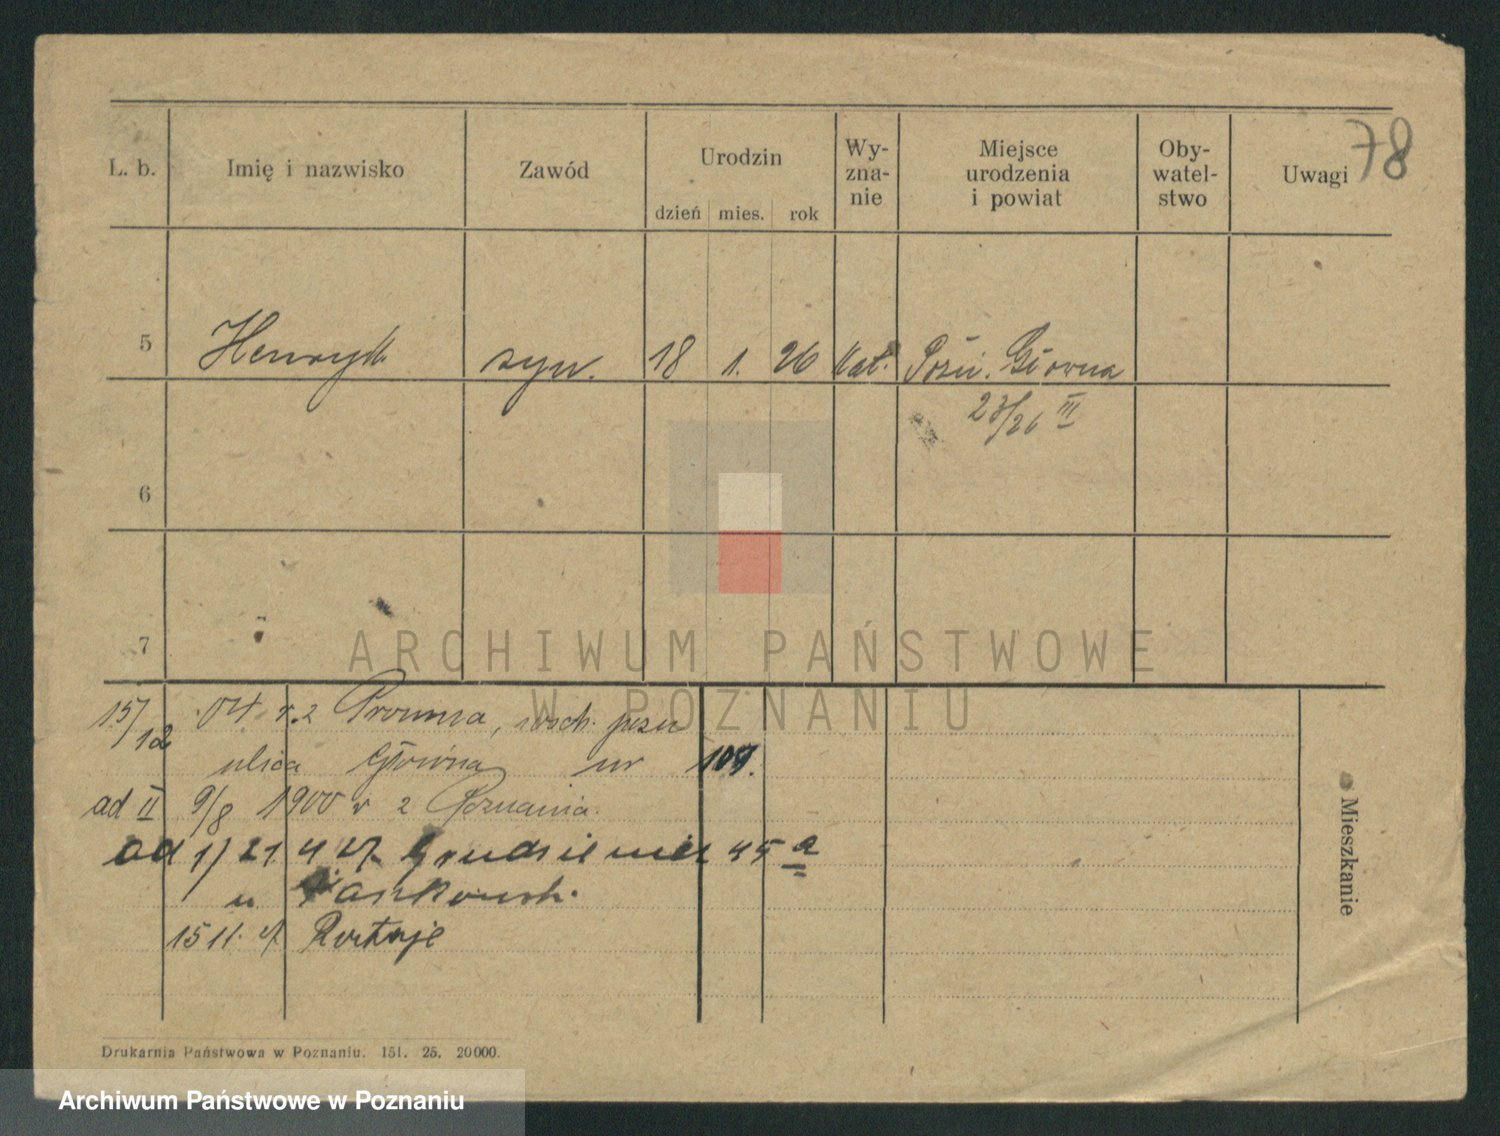 78
L. b. Imię i nazwisko Zawód Urodzin Wy-zna-nie Miejsce urodzenia i powiat Oby-watel-stwo Uwagi
dzień mies. rok
5 Henryk syn. 18 1. 26 kat. Pozn. Główna
23/26 III
6
7
ARCHIWUM PAŃSTWOWE
W POZNANIU
15/12 04 r. z wsch. pozn
ulica Główna nr 109.
ad II 9/8 1900 r z Poznania.
od 1/ 21 4 27 Grudzieniec 45 a
u
15 11. 27 Rataje
Mieszkanie
Drukarnia Państwowa w Poznaniu. 151. 25. 20000.
Archiwum Państwowe w Poznaniu